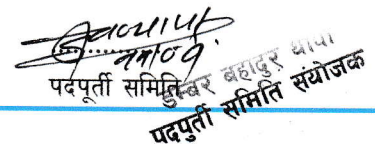 पदपूर्ती समिति
डम्बर बहादुर थापा
पदपुर्ती समिति संयोजक